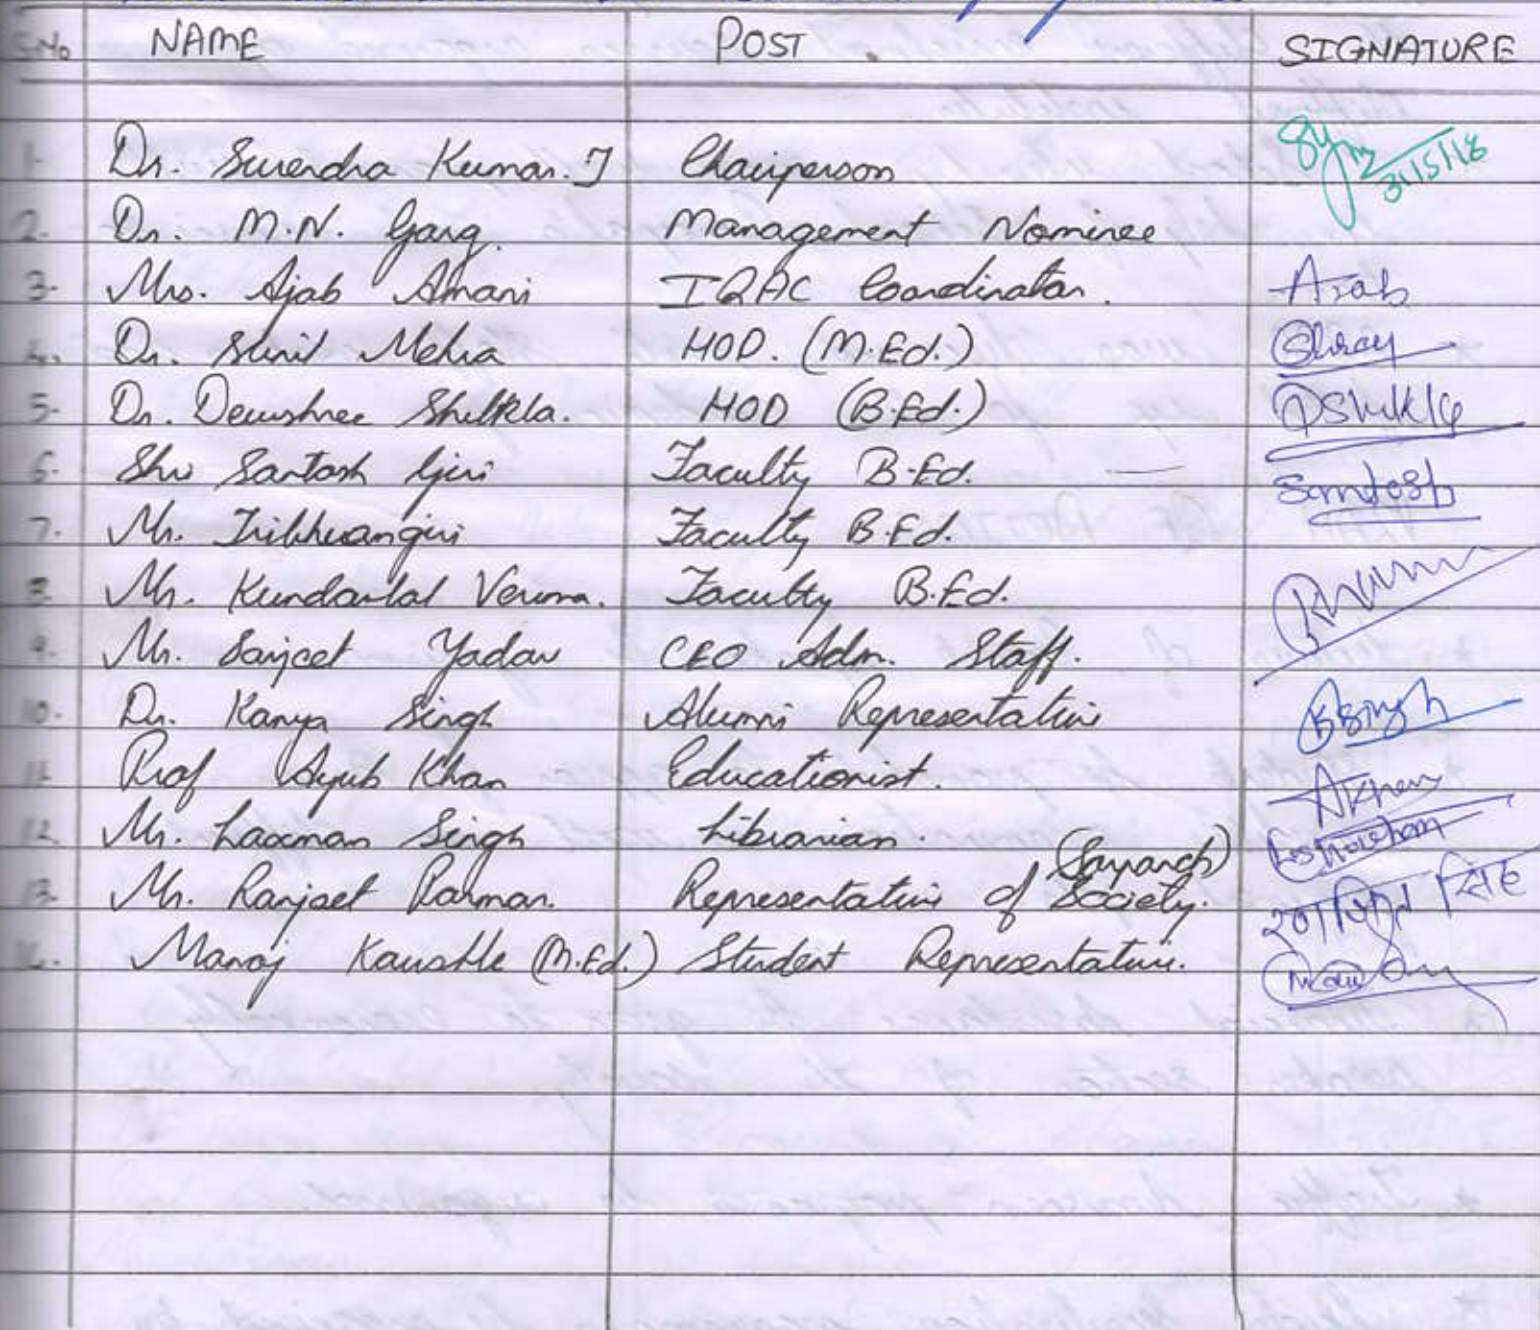 S.No NAME POST . SIGNATURE
1. Dr. Surendra Kumar. T Chairperson 31/5/18
2. Dr. M.N. Garg. Management Nominee
3. Mrs. Ajab Amani IQAC Coordinator. Ajab
4. Dr. Sunil Mehra HOD. (M.Ed.)
5. Dr. Dewshree Shukla. HOD (B.Ed.) DShukla
6. Shri Santosh Giri Faculty B.Ed. Santosh
7. Mr. Tribhuangiri Faculty B.Ed.
8. Mr. Kundanlal Verma. Faculty B.Ed.
9. Mr. Sanjeet Yadav CEO Adm. Staff.
10. Dr. Kanya Singh Alumni Representative Singh
11. Prof Ayub Khan Educationist. AKhan
12. Mr. Laxman Singh Librarian.
(Sarpanch)
13. Mr. Ranjeet Parmar. Representative of Society. सिंह
14. Manoj Kaushle (M.Ed.) Student Representative.